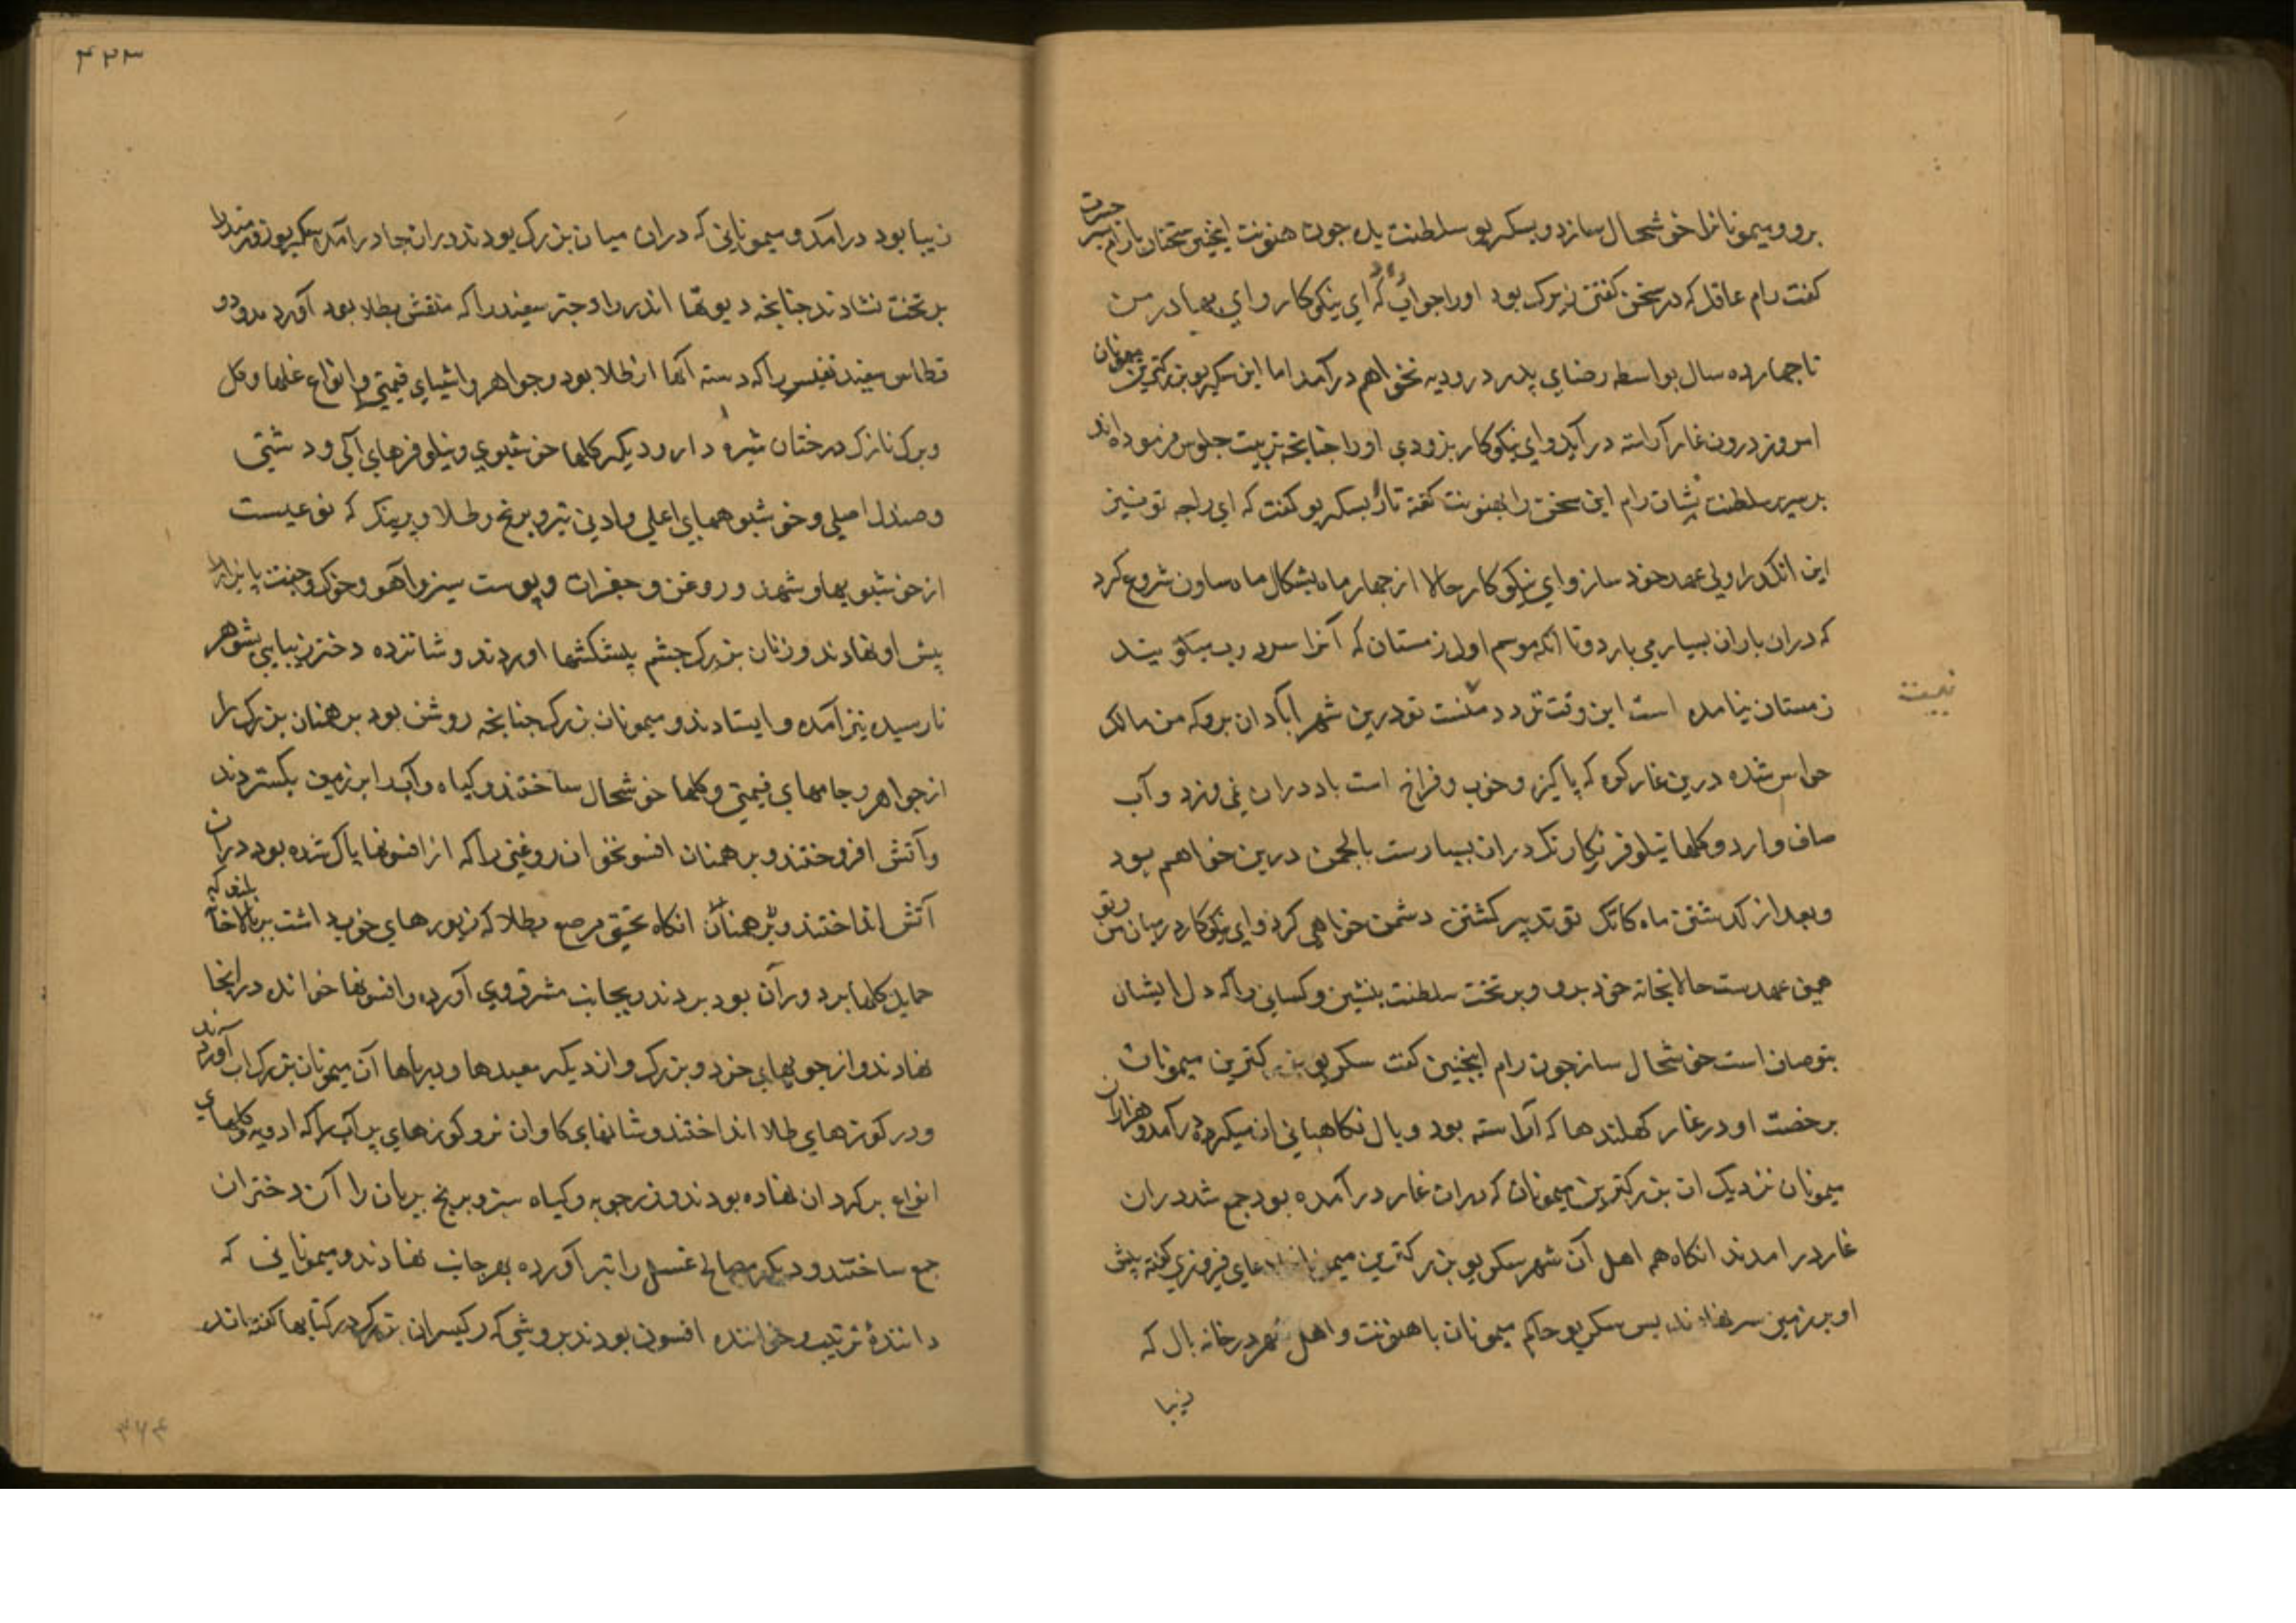 برو و میمونانرا خوشحال سازد و بسکریو سلطنت بده چون هنونت اینچنین سخنان با رام
کفت رام عاقل که در سخن کفتن بزرک بود اورا جواب داد که ای نیکوکار و ای بهادر من
تا چهارده سال بواسطه رضای پدر در و دیه نخواهم درآمد اما این سکریو بزرکترین میمونان
امروز درون غار آراسته در آید و ای نیکوکار بزودی اورا چنانچه تربیت جلوس فرموده اند
بر سریر سلطنت بنشان رام این سخن را بهنونت کفته تا بسکریو کفت که ای راجه تو نیز
این انکدرا ولی عهد خود ساز و ای نیکوکار حالا از چهار ماه بشکال ماه ساون شروع کرد
که دران باران بسیار می بارد و تا آنکه موسم اول زمستان که آنرا سرد رت میکویند
زمستان نیامده است این وقت تردد نیست تو درین شهر آبادان برو که من مالک
نیست
حواس شده درین غار کوه که پاکیزه و خوب و فراخ است باد دران نمی وزد و آب
صاف دارد و کلها نیلوفر رنکارنک دران بسیارست با لچمن درین خواهم بود
و بعد از کذشتن ماه کاتک تو تدبیر کشتن دشمن خواهی کرد و ای نیکوکار درمیان من و تو
همین عهدست حالا بخانه خود برو و بر تخت سلطنت بنشین و کسانی را که دل ایشان
بتو صاف است خوشحال ساز چون رام اینچنین کفت سکریو بزرکترین میمونان
برخصت او در غار کهکندها که آراسته بود و بال نکاهبانی ان میکرد درآمد و هزاران
میمونان نزدیک ان بزرکترین میمونان که دران غار درآمده بود جمع شد دران
غار درامدند انکاه هم اهل آن شهر سکریو بزرکترین میمونانرا دعای فیروزی کفته پیش
او بر زمین سر نهادند پس سکریو حاکم میمونان با هنونت و اهل شهر در خانه بال که
زیبا
۴۲۳
زیبا بود درآمد و میمونانی که دران میان بزرک بودند دران جا درآمده سکریو زورمندرا
بر تخت نشاندند چنانچه دیوتها اندر را و چتر سفید را که منقش بطلا بود آورده و دو
قطاس سفید نفیس را که دسته آنها از طلا بود و جواهر و اشیای قیمتی و انواع غلها و کل
و برک نازک درختان شیره دار و دیکر کلها خوشبوی و نیلوفرهای آبی و دشتی
و صندل اصیلی و خوشبوهای اعلی و ادنی و برنج و طلا و پرینک که نوعیست
از خوشبویها و شهد و روغن و جغرات و پوست سبز و آهو و خوک و جفت پا افزار
پیش او نهادند و زنان بزرک چشم پیشکشها اوردند و شانزده دختر زیبای بشوهر
نارسیده نیز آمده و ایستادند و میمونان بزرک چنانچه روشن بود برهمنان بزرک را
از جواهر و جامهای قیمتی و کلها خوشحال ساختند و کیاه و آب را بر زمین بکستردند
و آتش افروختند و برهمنان افسونخوان روغنی را که از افسونها پاک شده بود دران
آتش انداختند و برهمنان انکاه تختی مرصع بطلا که زیورهای خوب داشت بر بالاخانه بلند که
حمایل کلها بر دوران بود بردند و بجانب مشرق روی آورده و افسونها خوانده درانجا
نهادند و از جویهای خرد و بزرک و از دیکر معبدها و دریاها آن میمونان بزرک آب آوردند
و در کوزهای طلا انداختند و شاخهای کاوان نر و کوزهای پر آب را که ادویه و کلهای
انواع بر کرد ان نهاده بودند و زرجوبه و کیاه سبز و برنج بریان را آن دختران
جمع ساختند و دیکر مصالح غسل را تیر آورده بهر جانب نهادند و میمونانی که
دانندۀ ترتیب و خواننده افسون بودند بروشی که رکیسران بزرک در کتابها کفته اند
۴۲۴